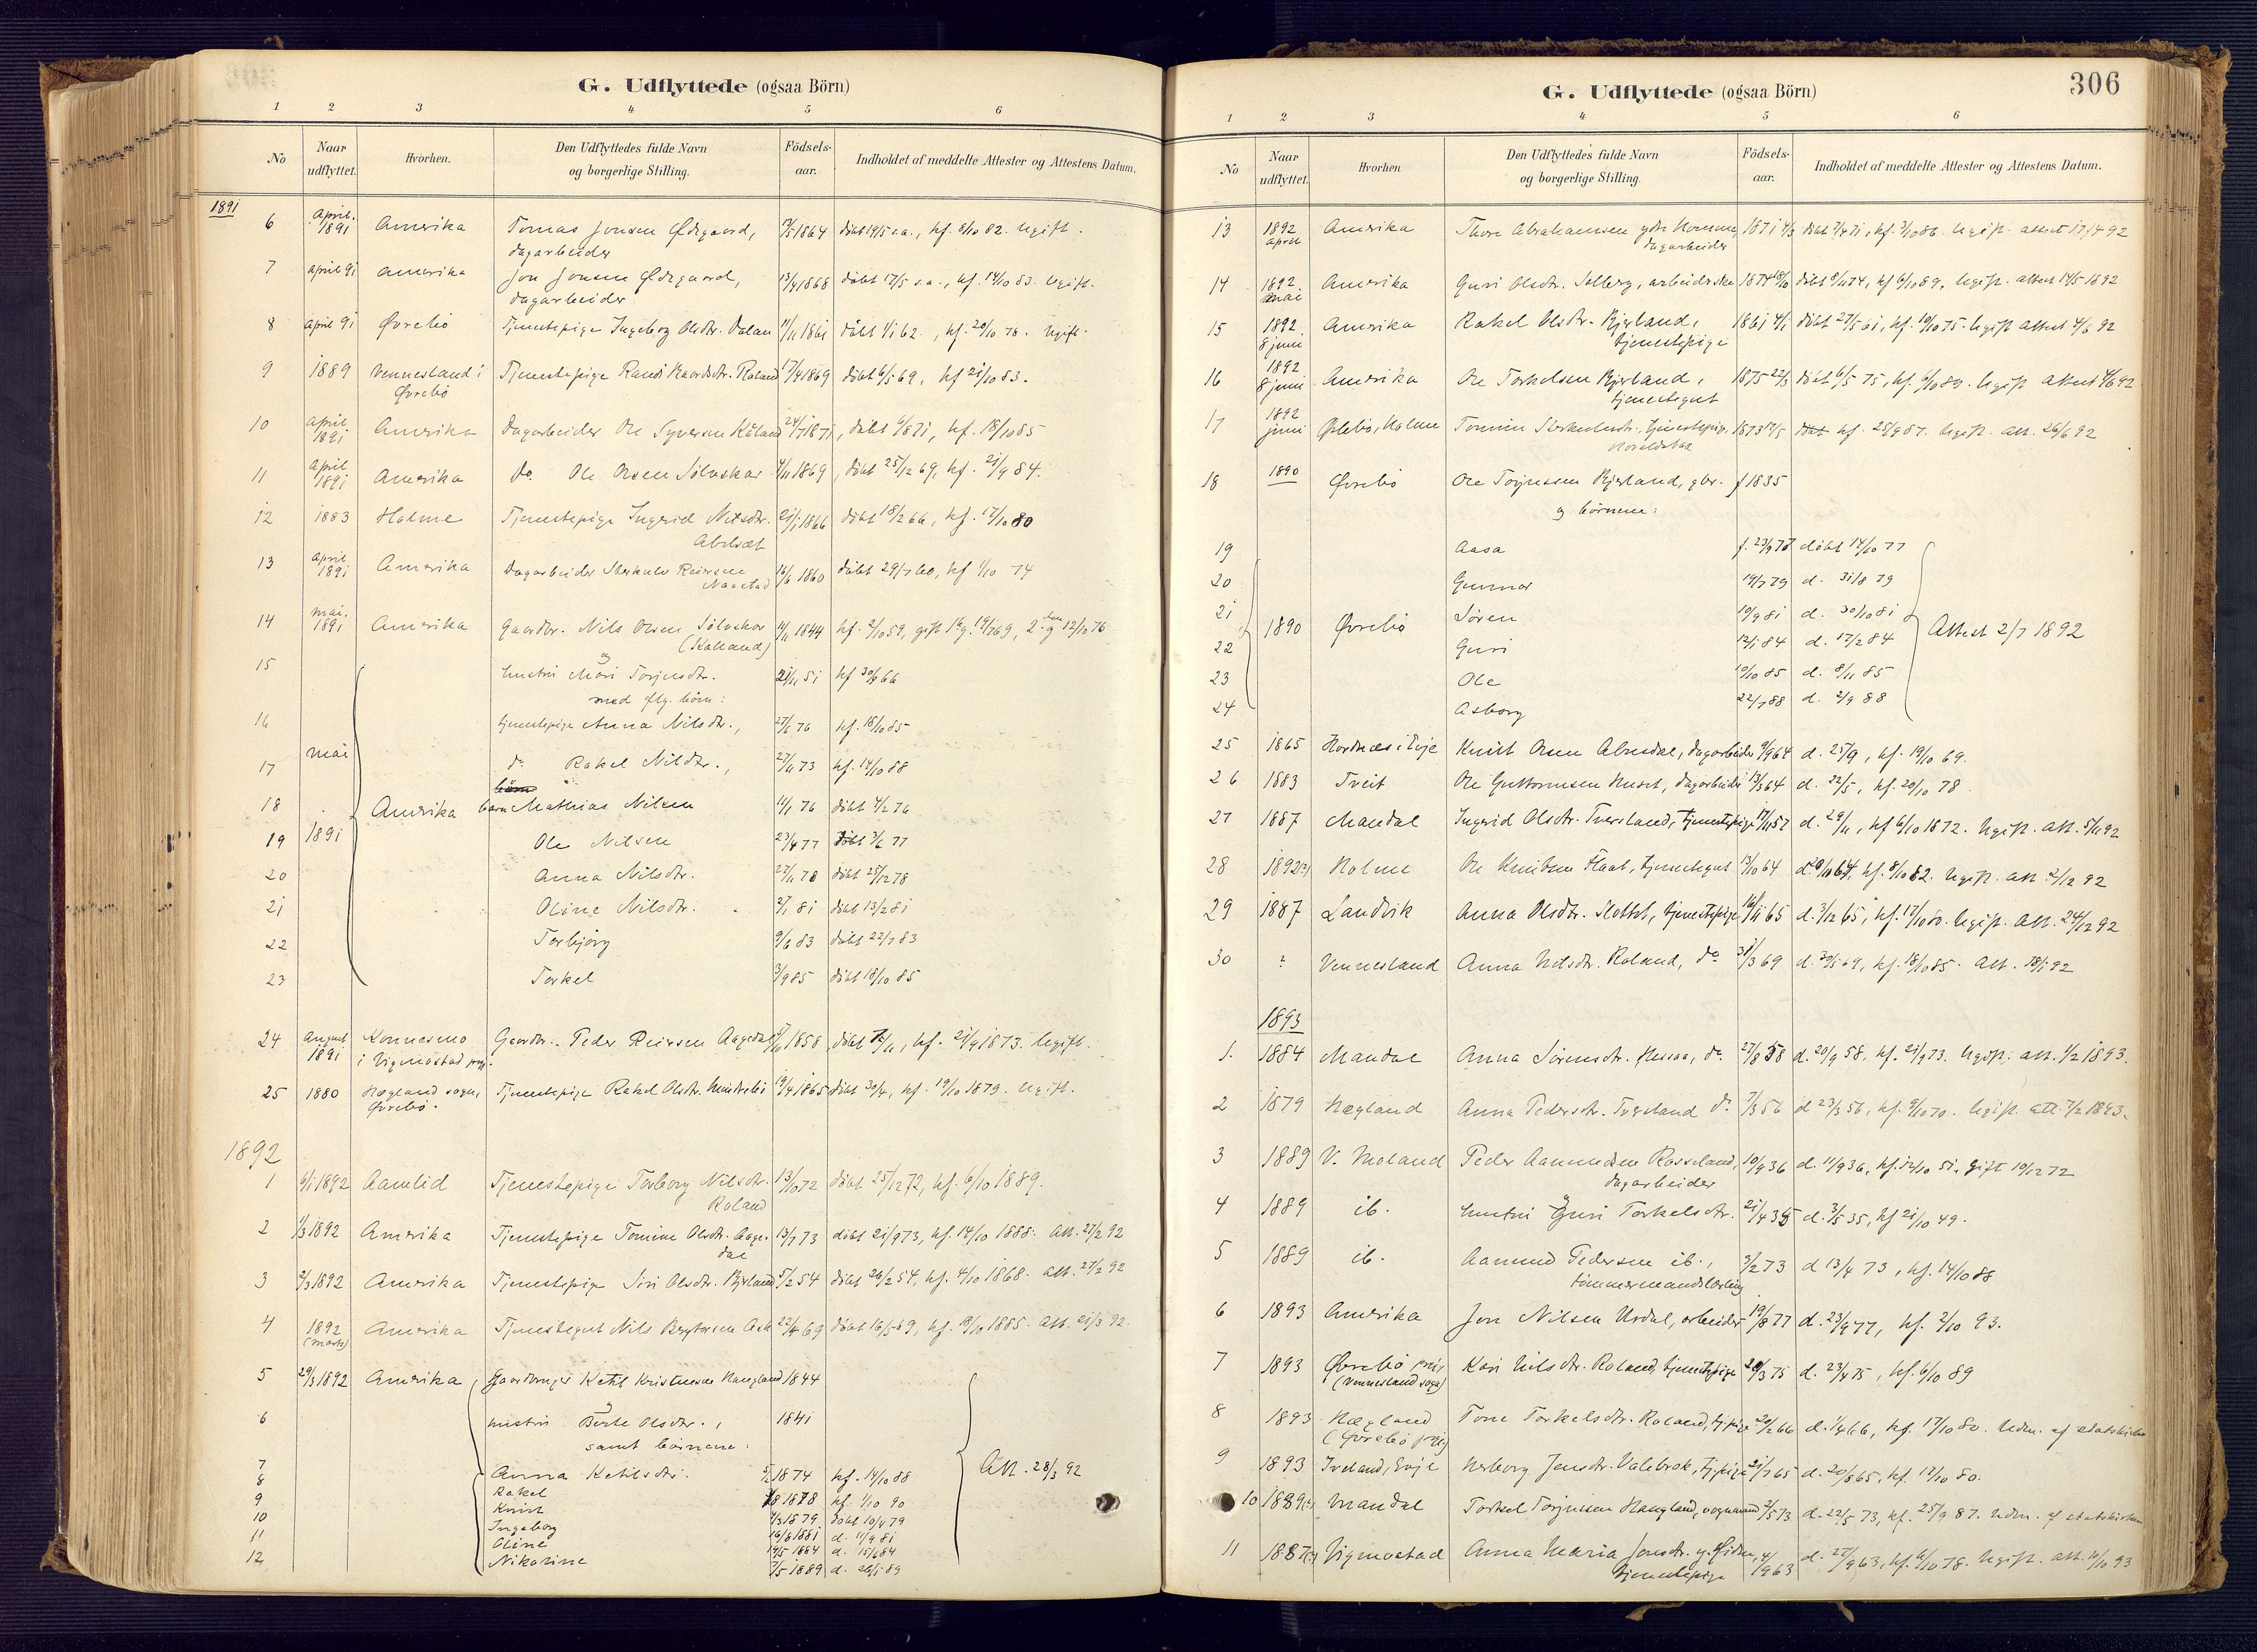 G. Udflyttede (ogsaa Börn)
1 2 3 4 5 6
No Naar udflyttet. Hvorhen. Den Udflyttedes fulde Navn og borgerlige Stilling. Födsels-aar. Indholdet af meddelte Attester og Attestens Datum.
1891
6 April. 1891 Amerika Tomas Jonsen Ødegaard, 1864 döbt 19/5 s.a., kf. 8/10 82. Ugift.
dagarbeider
7 april 91 Amerika Jon Jonsen Ødegaard, 13/4 1868 döbt 17/5 s.a., kf. 14/10 83. Ugift.
dagarbeider
8 april 91 Øvrebö Tjenestepige Ingeborg Olsdtr. Dalen 1861 döbt 1/1 62., kf. 20/10 76. Ugift.
9 1889 Vennesland i Tjenestepige Randi Roland 17/4 1869 döbt 6/5 69, kf 21/10 83.
Øvrebö
10 April 1891 Amerika Dagarbeider Ole Syversen Kåland 24/7 1871, döbt 6/8 71, kf. 18/10 85
11 April 1891 Amerika do. Ole Olsen Sölvskar 4/11 1869, döbt 25/12 69, kf. 21/9 84.
12 1883 Holme Tjenestepige Ingerid Nilsdtr. 21/1 1866 döbt 18/2 66, kf. 17/10 80
13 April 1891 Amerika Dagarbeider Sterkulv Reiersen 16/6 1860 döbt 29/7 60, kf 1/10 74
14 mai. 1891 Amerika Gaardbr. Nils Olsen Sölvskar 11/11 1844 kf. 2/10 59, gift 1ste g. 19/7 69, 2den g 12/10 76
(Kålland)
15 og hustru Mari Torjusdtr. 21/11 51 kf 30/9 66
med flg. börn:
16 tjenestepige Anna Nilsdtr., 27/6 70 kf. 18/10 85
17 mai do. Rakel Nilsdtr., 27/11 73 kf. 14/10 88
18 Amerika barn Mathias Nilsen 11/1 76 döbt 4/2 76
19 1891 Ole Nilsen 23/4 77 döbt 3/6 77
20 Anna Nilsdtr. 27/11 78 döbt 25/12 78
21 Oline Nilsdtr. 2/1 81 döbt 13/2 81
22 Torbjörg 9/6 83 döbt 22/7 83
23 Torkel 3/9 85 döbt 18/10 85
24 August 1891 Konnesmo Gaardbr. Peder Reiersen Aagedal 1858, döbt /11, kf. 21/9 1873. Ugift.
i Vigmostad prgj.
25 1880 Hægland sogn, Tjenestepige Rakel Olsdtr. 19/4 1865 döbt 30/4, kf. 19/10 1879. Ugift.
Øvrebö.
1892
1 6/1 1892 Aamlid Tjenestepige Torborg Nilsdtr. 13/10 72 döbt 25/12 72, kf. 6/10 1889.
Roland
2 1/3 1892 Amerika Tjenestepige Tomine Olsdtr. Aage- 13/7 73 döbt 21/9 73, kf. 14/10 1888. Att. 27/2 92
dal
3 2/3 1892 Amerika Tjenestepige Siri Olsdtr. Bjerland 5/2 54 döbt 26/2 54, kf. 4/10 1868. Att. 27/2 92
4 1892 (marts) Amerika Tjenestegut Nils Bergtorsen Ask 22/4 69 döbt 16/5 69, kf. 18/10 1885. Att. 21/3 92.
5 29/3 1892 Amerika Gaardbruger Ketil Kristensen Haugland 1844
6 og hustru Berte Olsdtr., 1841
samt börnene:
7 Anna Ketilsdtr. 1874 kf. 14/10 88
8 Rakel 1878 kf. 1/10 90
9 Knut 1879 döbt 10/4 79
10 Ingeborg 16/8 1881 d. 11/9 81
11 Oline 19/5 1884 d. 15/6 84
12 Nikoline 7/5 1889 d. 89
Att. 28/3 92
306
G. Udflyttede (ogsaa Börn)
1 2 3 4 5 6
No Naar udflyttet. Hvorhen Den Udflyttedes fulde Navn og borgerlige Stilling. Födsels-aar. Indholdet af meddelte Attester og Attestens Datum.
13 1892 april Amerika Thore Abrahamsen Homme, 1871 4/3 döbt 71, kf. 86. Ugift. attest 17/4 92
dagarbeider
14 1892. mai Amerika Guri Olsdtr. Solberg, arbeiderske 1874 18/10 döbt 8/11 74, kf 6/10 89. Ugift. attest 14/5 1892
15 1892 8 juni Amerika Rakel Olsdtr. Bjerland, 1861 4/1 döbt 27/5 61, kf. 10/10 75. Ugift attest 4/6 92
tjenestepige
16 1892 8 juni Amerika Ole Torkelsen Bjerland, 1875 22/3 döbt 6/5 75, kf. 6/10 89. Ugift attest 4/6 92
tjenestegut
17 1892 juni Øslebö, Holme Tomine tjenestepige, 1873 17/5 kf. 25/9 87. Ugift. att. 26/6 92
18 1890 Øvrebö Ole Torjussen Bjerland, gbr. f 1835
og börnene:
19 Aasa f. 23/9 77 döbt 14/10 77
20 Gunnar 19/7 79 d. 31/8 79
21 Sören 10/9 81 d. 30/10 81
1890 Øvrebö Attest 2/7 1892
22 Guri 12/1 84 d. 17/2 84
23 Ole 10/10 85 d. 8/11 85
24 Asborg 22/7 88 d. 2/9 88
25 1865 Hordnæs i Evje Knut Olsen Abusdal, dagarbeider 9/9 64 d. 25/9, kf. 19/10 69.
26 1883 Tveit Ole Guttormsen Huset, dagarbeider 13/3 64 d. 22/5, kf. 20/10 78.
27 1887 Mandal Ingerid Olsdtr. Tversland, tjenestepige 17/11 57 d. 29/11, kf 6/10 1872. Ugift. att. 5/11 92
28 1892 Holme Ole Knutsen Flaat, tjenestegut 13/10 64 kf. 8/10 82. Ugift. att. 2/12 92
29 1887 Landvik Anna Olsdtr. Slottet, tjenestepige 16/11 65 d. 3/12 65, kf. 17/10 80. Ugift. att. 24/12 92
30 ? Vennesland Anna Nilsdtr. Roland, do. 31/3 69 d. 20/5 69, kf. 18/10 85. Att. 18/1 92
1893
1. 1884 Mandal Anna Sörensdtr. do. 27/8 58 d. 20/9 58, kf. 21/9 73. Ugift. att. 1/2 1893.
2 1879 Hægland Anna Pedersdtr. Tversland do. 7/3 56 d 23/3 56, kf. 9/10 70. Ugift. att. 7/2 1893.
3 1889 V. Moland Peder Aamundsen Rosseland, 10/9 36 d. 11/9 36, kf. 12/10 51. Gift 10/12 72
dagarbeider
4 1889 ib. og hustru Guri Torkelsdtr. 21/4 35 d. 3/5 35, kf 21/10 49.
5 1889 ib. Aamund Pedersen ib., 3/2 73 d 13/4 73, kf. 14/10 88
tömmermandslærling
6 1893 Amerika Jon Nilsen Usdal, arbeider 19/8 77 d. 23/9 77, kf. 2/10 93.
7 1893 Øvrebö prgj. Kari Nilsdtr. Roland, tjenestepige 20/3 75 d. 23/4 75, kf. 6/10 89
(Vennesland sogn)
8 1893 Hægland Tone Torkelsdtr. Roland, tj.pige 20/2 66 d. 1/4 66, kf. 17/10 80. Udm. af statskirken
(Øvrebö prgj.)
9 1893 Iveland, Evje Herborg Jensdtr. Valebrok, tj.pige 21/7 65 d. 20/8 65, kf. 17/10 80.
10 1889 Mandal Torkel Torjussen Haugland, vognmand 2/5 73 d. 22/5 73, kf. 25/9 87. Udm. af statskirken
11 1887 Vigmostad Anna Maria Jonsdtr. 4/9 63 d. 27/9 63, kf. 6/10 78. Ugift. att. 10/10 93
tjenestepige